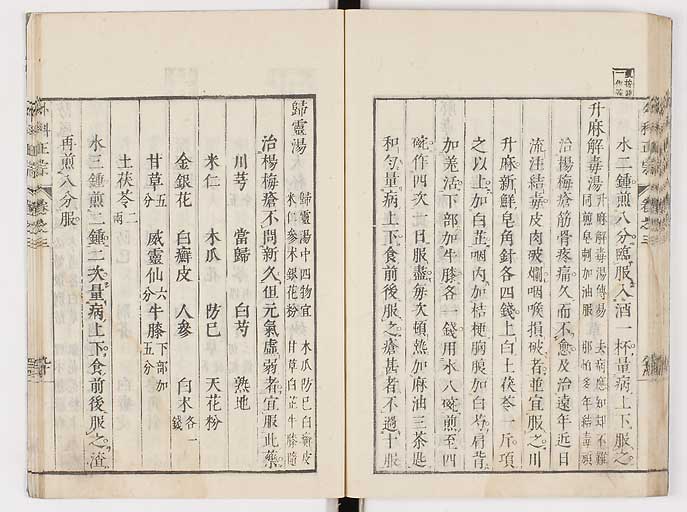 水二鍾煎八分臨服入酒一杯量病上下服之
升麻解毒湯 升麻解毒湯傳易 夫病應知却不難 同煎皂刺加油服 那怕多年結毒頑
治楊梅瘡筋骨疼痛久而不愈及治遠年近日
流注結毒皮肉破爛咽喉損破者並宜服之川
升麻新鮮皂角針各四錢上白土茯苓一斤項
之以上加白芷咽內加桔梗胸膜加白芍肩背
加羌活下部加牛膝各一錢用水八碗煎至四
碗作四次一日服盡每次頓熟加麻油三茶匙
和勻量病上下食前後服之瘡甚者不過十服
歸靈湯 歸靈湯中四物宜 米仁參朮銀花粉 木瓜防巳白癬皮 甘草白芷牛膝隨
治楊梅瘡不問新久但元氣虛弱者宜服此藥
川芎 當歸 白芍 熟地
米仁 木瓜 防巳 天花粉
金銀花 白癬皮 人參 白朮各一錢
甘草五分 威靈仙六分 牛膝下部加五分
土茯苓二兩
水三鍾煎二鍾二次量病上下食前後服之渣
再煎八分服
外科正宗 卷之三